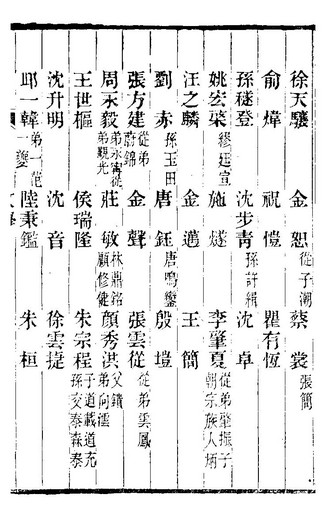 徐天驥 金恕從子潮 蔡裳張簡
俞煒 祝愷 瞿有恆
孫毯登 沈步青孫許緝 沈卓
姚宏棨繆廷宣 施燧 李肇夏從弟肇振子朝宗族人炳
汪之麟 金邁 王簡
劉赤孫玉田 唐鈺唐鳴鑾 殷塏
張方建從弟蔚錦 金聲 張雲從從弟雲鳳
周永毅弟永甯從弟觀光 莊敏林鼎銘顧修健 顏秀洪父鏞弟向澐
王世樞 侯瑞隆 朱宗程子道載道充孫文泰森泰
沈升明 沈音 徐雲捷
邱一韓弟一范一夔 陸秉鑑 朱桓